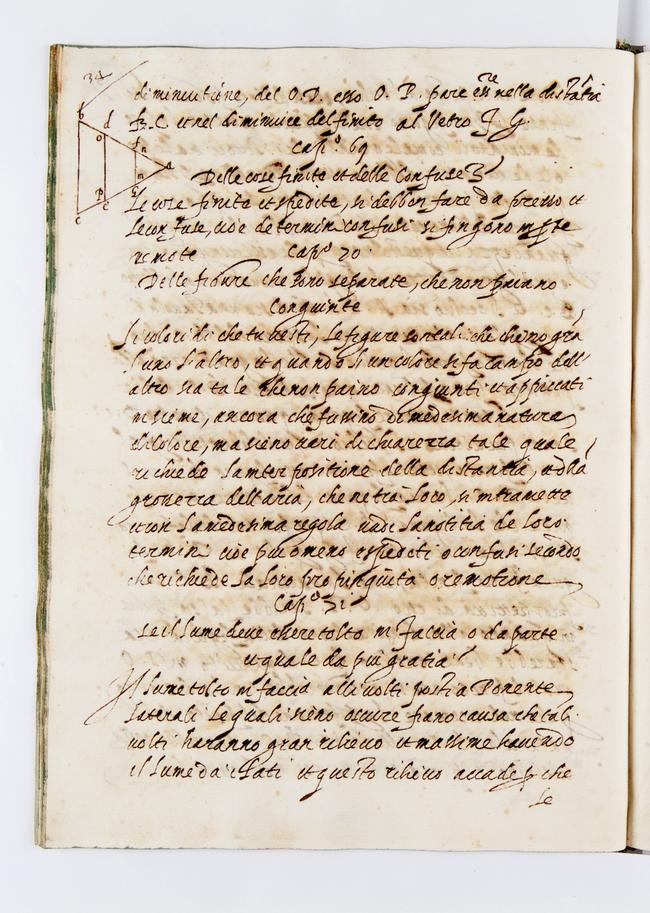 34
b
d
o
f
n
a
m
g
P
e
c
diminutione, del O. D. con O. P. pare esser nella distātia
B. C. et nel diminuire del finito al Vetro F. G.
Cap.º 69
Delle cose finite et delle Confuse
Le cose finite et spedite, si debbon fare da presso et
le confuse, cioè de termin confusi si fingono in pte
remote Cap.º 70
Delle figure che sono separate, che non paiano
congiunte
Li colori di che tu vesti, le figure son tali che
l'uno l'altro, et quando l'un colore si fa campo dell'
altro sia tale che non paino congiunti et appiccati
insieme, ancora che fussino di medesima natura
di colore, ma sieno vari di chiarezza tale quale
richiede l'interpositione della distantia, et dlla
grossezza dell'aria, che netra loro, si intramette
et con la medesima regola vadi la notitia de loro
termini cioè piu o meno espediti o confusi secondo
che richiede la loro propinquita o remotione
Cap.º 71
Se il lume deve essere tolto in faccia o da parte
et quale da piu gratia
Il lume tolto in faccia alli volti posti a Ponente
laterali le quali sieno oscure fiano causa che tali
volti haranno gran rilievo et massime havendo
il lume da i lati et questo rilievo accade p che
le